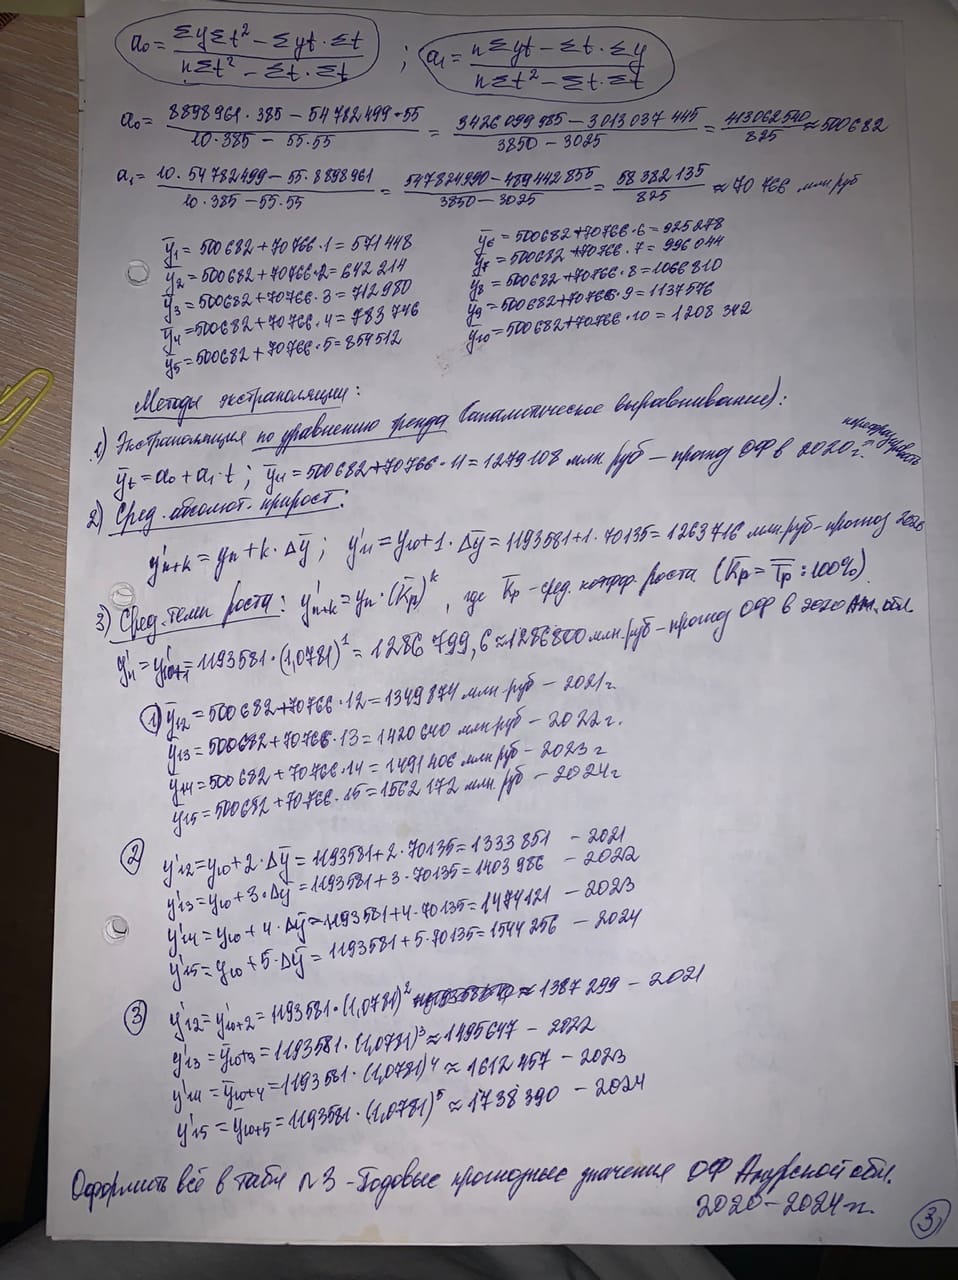 a₀ = (ΣyΣt² − Σyt · Σt) / (nΣt² − Σt · Σt) ; a₁ = (nΣyt − Σt · Σy) / (nΣt² − Σt · Σt)
a₀ = (8898961 · 385 − 54782499 · 55) / (10 · 385 − 55·55) = (3426099985 − 3013037445) / (3850 − 3025) = 413062540 / 825 ≈ 500682
a₁ = (10 · 54782499 − 55 · 8898961) / (10·385 − 55·55) = (547824990 − 489442855) / (3850 − 3025) = 58382135 / 825 ≈ 70766 млн руб
ȳ₁ = 500682 + 70766 · 1 = 571448
ȳ₂ = 500682 + 70766 · 2 = 642214
ȳ₃ = 500682 + 70766 · 3 = 712980
ȳ₄ = 500682 + 70766 · 4 = 783746
ȳ₅ = 500682 + 70766 · 5 = 854512
ȳ₆ = 500682 + 70766 · 6 = 925278
ȳ₇ = 500682 + 70766 · 7 = 996044
ȳ₈ = 500682 + 70766 · 8 = 1066810
ȳ₉ = 500682 + 70766 · 9 = 1137576
ȳ₁₀ = 500682 + 70766 · 10 = 1208342
Методы экстраполяции:
1) Экстраполяция по уравнению тренда (аналитическое выравнивание):
ȳt = a₀ + a₁ · t ; ȳ₁₁ = 500682 + 70766 · 11 = 1279108 млн руб – прогноз ОФ в 2020 г.
2) Сред. абсолют. прирост:
y'n+k = yn + k · Δȳ ; y'₁₁ = y₁₀ + 1 · Δȳ = 1193581 + 1 · 70135 = 1263716 млн.руб – прогноз 2020
3) Сред. темп роста: y'n+k = yn · (K̄р)ᵏ , где K̄р – сред. коэфф. роста (K̄р = T̄р : 100%)
y'₁₁ = y'₁₀₊₁ = 1193581 · (1,0781)¹ = 1286799,6 ≈ 1286800 млн.руб – прогноз ОФ в 2020 Ам. обл.
1) ȳ₁₂ = 500682 + 70766 · 12 = 1349874 млн руб – 2021 г.
ȳ₁₃ = 500682 + 70766 · 13 = 1420640 млн руб – 2022 г.
ȳ₁₄ = 500682 + 70766 · 14 = 1491406 млн руб – 2023 г
ȳ₁₅ = 500682 + 70766 · 15 = 1562172 млн. руб – 2024 г
2 y'₁₂ = y₁₀ + 2 · Δȳ = 1193581 + 2 · 70135 = 1333851 – 2021
y'₁₃ = y₁₀ + 3 · Δȳ = 1193581 + 3 · 70135 = 1403986 – 2022
y'₁₄ = y₁₀ + 4 · Δȳ = 1193581 + 4 · 70135 = 1474121 – 2023
y'₁₅ = y₁₀ + 5 · Δȳ = 1193581 + 5 · 70135 = 1544256 – 2024
3 y'₁₂ = y'₁₀₊₂ = 1193581 · (1,0781)² ≈ 1387299 – 2021
y'₁₃ = ȳ₁₀₊₃ = 1193581 · (1,0781)³ ≈ 1495647 – 2022
y'₁₄ = ȳ₁₀₊₄ = 1193581 · (1,0781)⁴ ≈ 1612457 – 2023
y'₁₅ = ȳ₁₀₊₅ = 1193581 · (1,0781)⁵ ≈ 1738390 – 2024
Оформить всё в табл №3 – Годовые прогнозные значения ОФ Амурской обл.
2020–2024 гг.
3